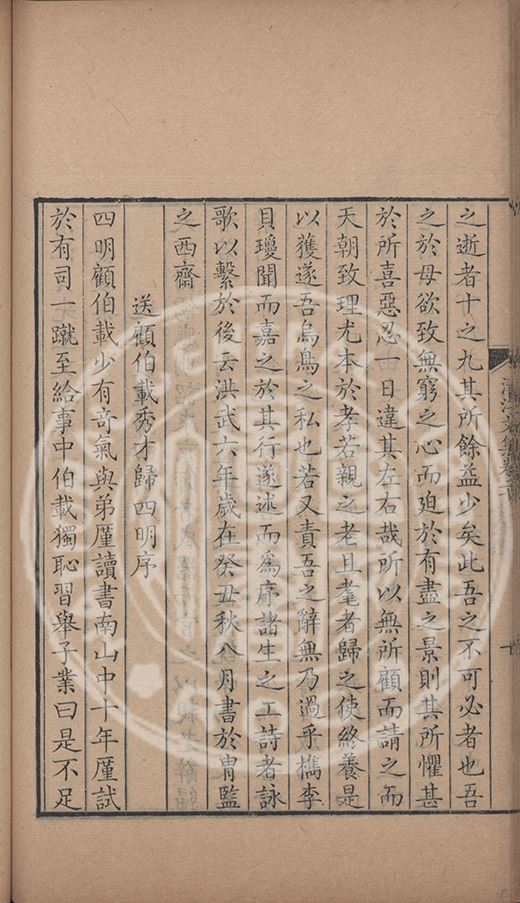 之逝者十之九其所餘益少矣此吾之不可必者也吾
之於母欲致無窮之心而迫於有盡之景則其所懼甚
於所喜惡忍一日違其左右哉所以無所顧而請之而
天朝致理尤本於孝若親之老且耄者歸之使終養是
以獲遂吾烏鳥之私也若又責吾之辭無乃過乎檇李
貝瓊聞而嘉之於其行遂述而爲序諸生之工詩者詠
歌以繫於後云洪武六年歲在癸丑秋八月書於胄監
之西齋
送顧伯載秀才歸四明序
四明顧伯載少有奇氣與弟厚讀書南山中十年厚試
於有司一蹴至給事中伯載獨恥習舉子業曰是不足